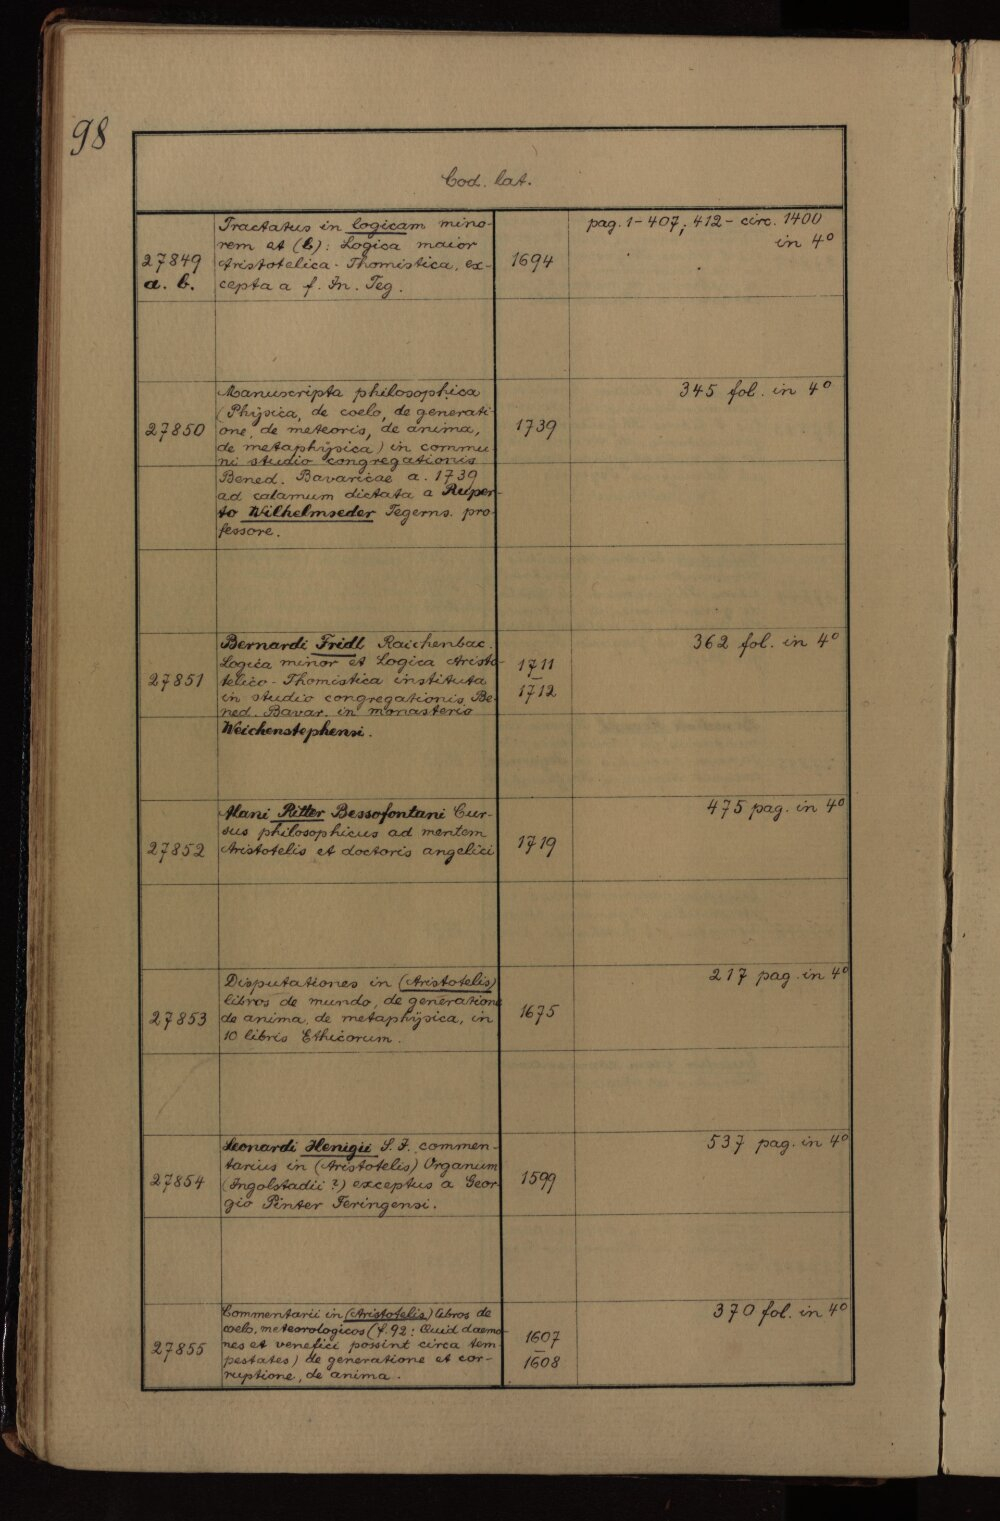 98
Cod. lat.
27849
a. b.
Tractatus in logicam mino-
rem et (b): Logica maior
Aristotelica-Thomistica, ex-
cepta a f. In. Teg.
1694
pag. 1-407, 412- circ. 1400
in 4°
27850
Manuscripta philosophica
(Physica, de coelo, de generati-
one, de meteoris, de anima,
de metaphysica) in commu-
ni studio congregationis
Bened. Bavaricae a. 1739
ad calamum dictata a Ruper-
to Wilhelmseder Tegerns. pro-
fessore.
1739
345 fol. in 4°
27851
Bernardi Fridl Raichenbac.
Logica minor et Logica Aristo-
telico-Thomistica instituta
in studio congregationis Be-
ned. Bavar. in monasterio
Weichenstephensi.
1711
–
1712
362 fol. in 4°
27852
Alani Ritter Bessofontani Cur-
sus philosophicus ad mentem
Aristotelis et doctoris angelici
1719
475 pag. in 4°
27853
Disputationes in (Aristotelis)
libros de mundo, de generatione
de anima, de metaphysica, in
10 libris Ethicorum.
1675
217 pag. in 4°
27854
Leonardi Henigii S. J. commen-
tarius in (Aristotelis) Organum
(Ingolstadii?) exceptus a Geor-
gio Pinter Feringensi.
1599
537 pag. in 4°
27855
Commentarii in (Aristotelis) libros de
coelo, meteorologicos (f. 92: Quid daemo-
nes et venefici possint circa tem-
pestates) de generatione et cor-
ruptione, de anima.
1607
–
1608
370 fol. in 4°